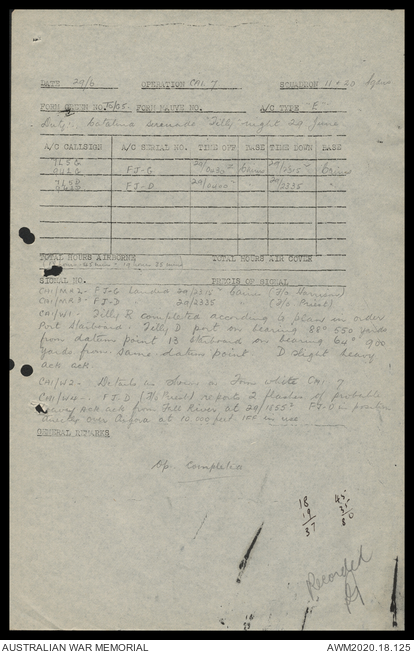 DATE 29/6 OPERATION CAI. 7 SQUADRON 11 & 20 Sqdn
FORM GREEN NO. FORM MAUVE NO. A/C TYPE E
Duty: Catalina serenade "Tilly" night 29 June
A/C CALLSIGN A/C SERIAL NO. TIME OFF BASE TIME DOWN BASE
FJ-G 29/0430 29/2315 Cairns
FJ-D 29/0440 29/2335 "
TOTAL HOURS AIRBORNE TOTAL HOURS AIR COVER
SIGNAL NO. PRECIS OF SIGNAL
CAI/MR2 - FJ-G landed 29/2315 Cairns (F/O Harrison)
CAI/MR3 - FJ-D " 29/2335 " (F/O Priest)
CAI/W1. Tilly R completed according to plan in order
Port Starboard. Tilly D port on bearing 88° 550 yards
from datum point 13 starboard on bearing 64° 900
yards from same datum point. D slight heavy
ack ack.
CAI/W2 - Details as given in Form white CAI 7
CAI/W4 - FJ-D (F/O Priest) reports 2 flashes of probable
heavy ack ack from Fell River at 29/1155 FJ-D in position
miles over at 10,000 feet IFF in use
GENERAL REMARKS
Op Completed
18 45
19 35
37 80
Recorded
AUSTRALIAN WAR MEMORIAL AWM2020.18.125